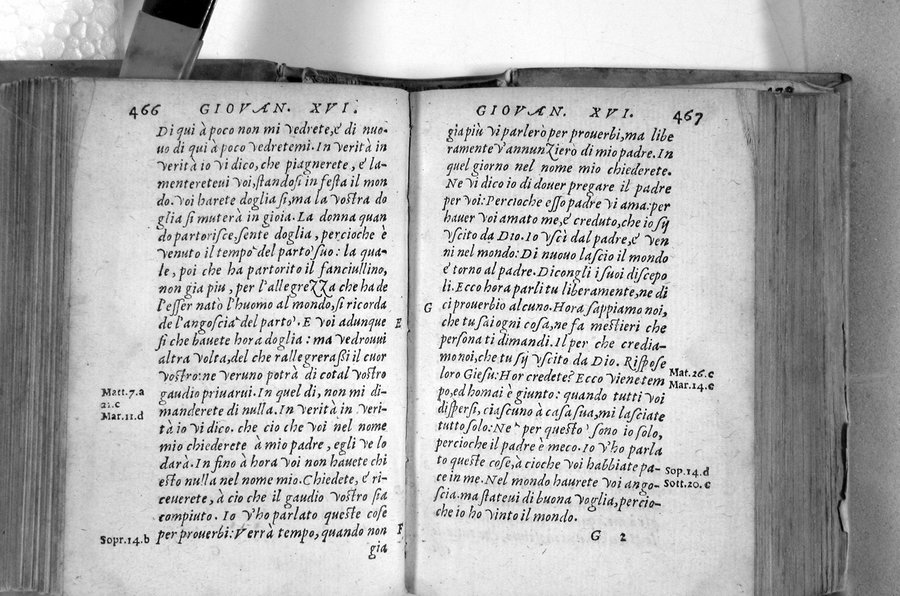 466 GIOVAN. XVI.
Di qui à poco non mi vedrete, e di nuo-
uo di qui à poco vedretemi. In verità in
verità io vi dico, che piagnerete, e la-
mentereteui voi, standosi in festa il mon
do. Voi harete doglia sì, ma la vostra do
glia si muterà in gioia. La donna quan
do partorisce, sente doglia, percioche è
venuto il tempo del parto suo: la qua-
le, poi che ha partorito il fanciullino,
non già piu, per l'allegrezza che ha de
l'esser nato l'huomo al mondo, si ricorda
de l'angoscia del parto. E voi adunque
E
si che hauete hora doglia: ma vedrouui
altra volta, del che rallegrerassi il cuor
vostro: ne veruno potrà di cotal vostro
Matt.7.a
gaudio priuarui. In quel dì, non mi di-
21.c
manderete di nulla. In verità in veri-
Mar.11.d
tà io vi dico. che cio che voi nel nome
mio chiederete à mio padre, egli ve lo
darà. In fino à hora voi non hauete chi
esto nulla nel nome mio. Chiedete, e ri-
ceuerete, à cio che il gaudio vostro sia
compiuto. Io v'ho parlato queste cose
Sopr.14.b
per prouerbi: Verrà tempo, quando non
F
gia
GIOVAN. XVI. 467
gia più vi parlerò per prouerbi, ma libe
ramente v'annunzierò di mio padre. In
quel giorno nel nome mio chiederete.
Ne vi dico io di douer pregare il padre
per voi: Percioche esso padre vi ama: per
hauer voi amato me, e creduto, che io sij
vscito da DIO. Io vscì dal padre, e ven
ni nel mondo: Di nuouo lascio il mondo
e torno al padre. Dicongli i suoi discepo
li. Ecco hora parli tu liberamente, ne di
G
ci prouerbio alcuno. Hora sappiamo noi,
che tu sai ogni cosa, ne fa mestieri che
persona ti dimandi. Il per che credia-
mo noi, che tu sij vscito da DIO. Rispose
loro Giesu: Hor credete? Ecco viene tem
Mat.26.c
Mar.14.c
po, ed homai è giunto: quando tutti voi
dispersi, ciascuno à casa sua, mi lasciate
tutto solo: Ne per questo sono io solo,
percioche il padre è meco. Io v'ho parla
to queste cose, à cioche voi habbiate pa-
Sop.14.d
ce in me. Nel mondo haurete voi ango-
Sott.20.c
scia. ma stateui di buona voglia, percio-
che io ho vinto il mondo.
G 2